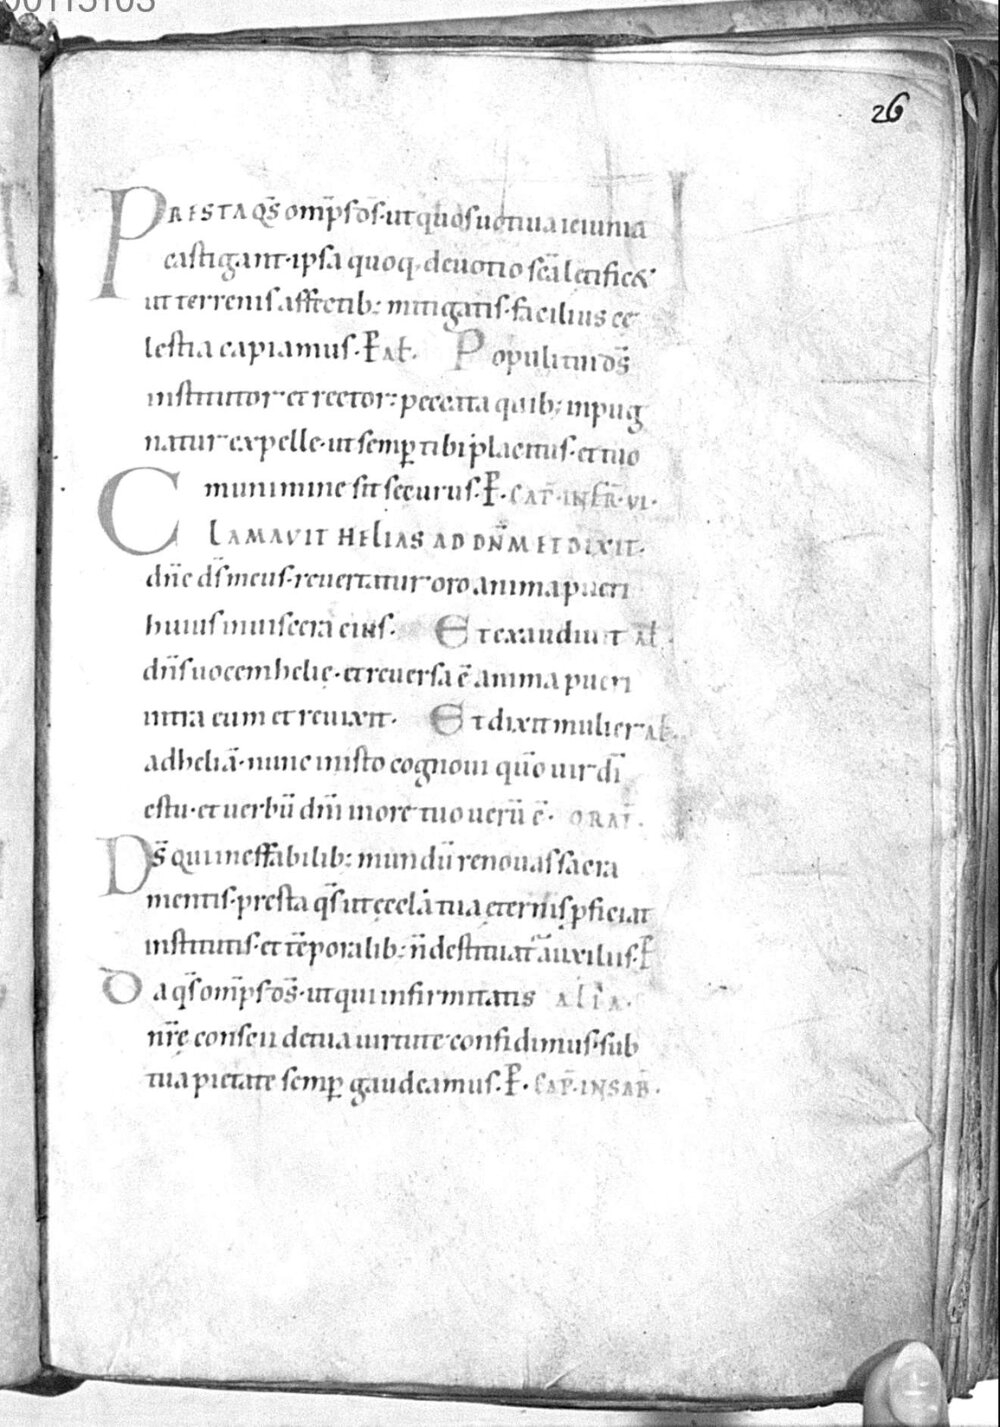 00115103
26
PRESTA QS̄ omp̄s d̄s·ut quos uotiua ieiunia
castigant·ipsa quoq; deuotio sc̄a letificet
ut terrenis affectib: mitigatis·facilius ce
lestia capiamus·P̄ AL̄· Populi tui d̄s
institutor et rector: peccata quib; inpug
natur expelle·ut semp̄ tibi placitus·et tuo
munimine sit securus·P̄· CAP̄·IN FR̄·VI·
CLAMAVIT HELIAS AD DN̄M ET DIXIT·
dn̄e d̄s meus·reuertatur oro anima pueri
huius in uiscera eius· Et exaudiuit AL̄·
dn̄s uocem helie·et reuersa ē anima pueri
intra eum et reuixit· Et dixit mulier AL̄·
ad heliā·nunc in isto cognoui qūo uir dī
es tu·et uerbū dn̄i in ore tuo uerū ē· ORAT̄·
Ds̄ qui ineffabilib: mundū renouas sacra
mentis·presta qs̄ ut eccl̄a tua eternis p̄ficiat
institutis·et tēporalib: n̄ destituat̄ auxiliis·P̄
Da qs̄ omp̄s d̄s·ut qui infirmitatis ALIA·
nr̄ę conscii de tua uirtute confidimus·sub
tua pietate semp̄ gaudeamus·P̄· CAP̄·IN SAB̄·